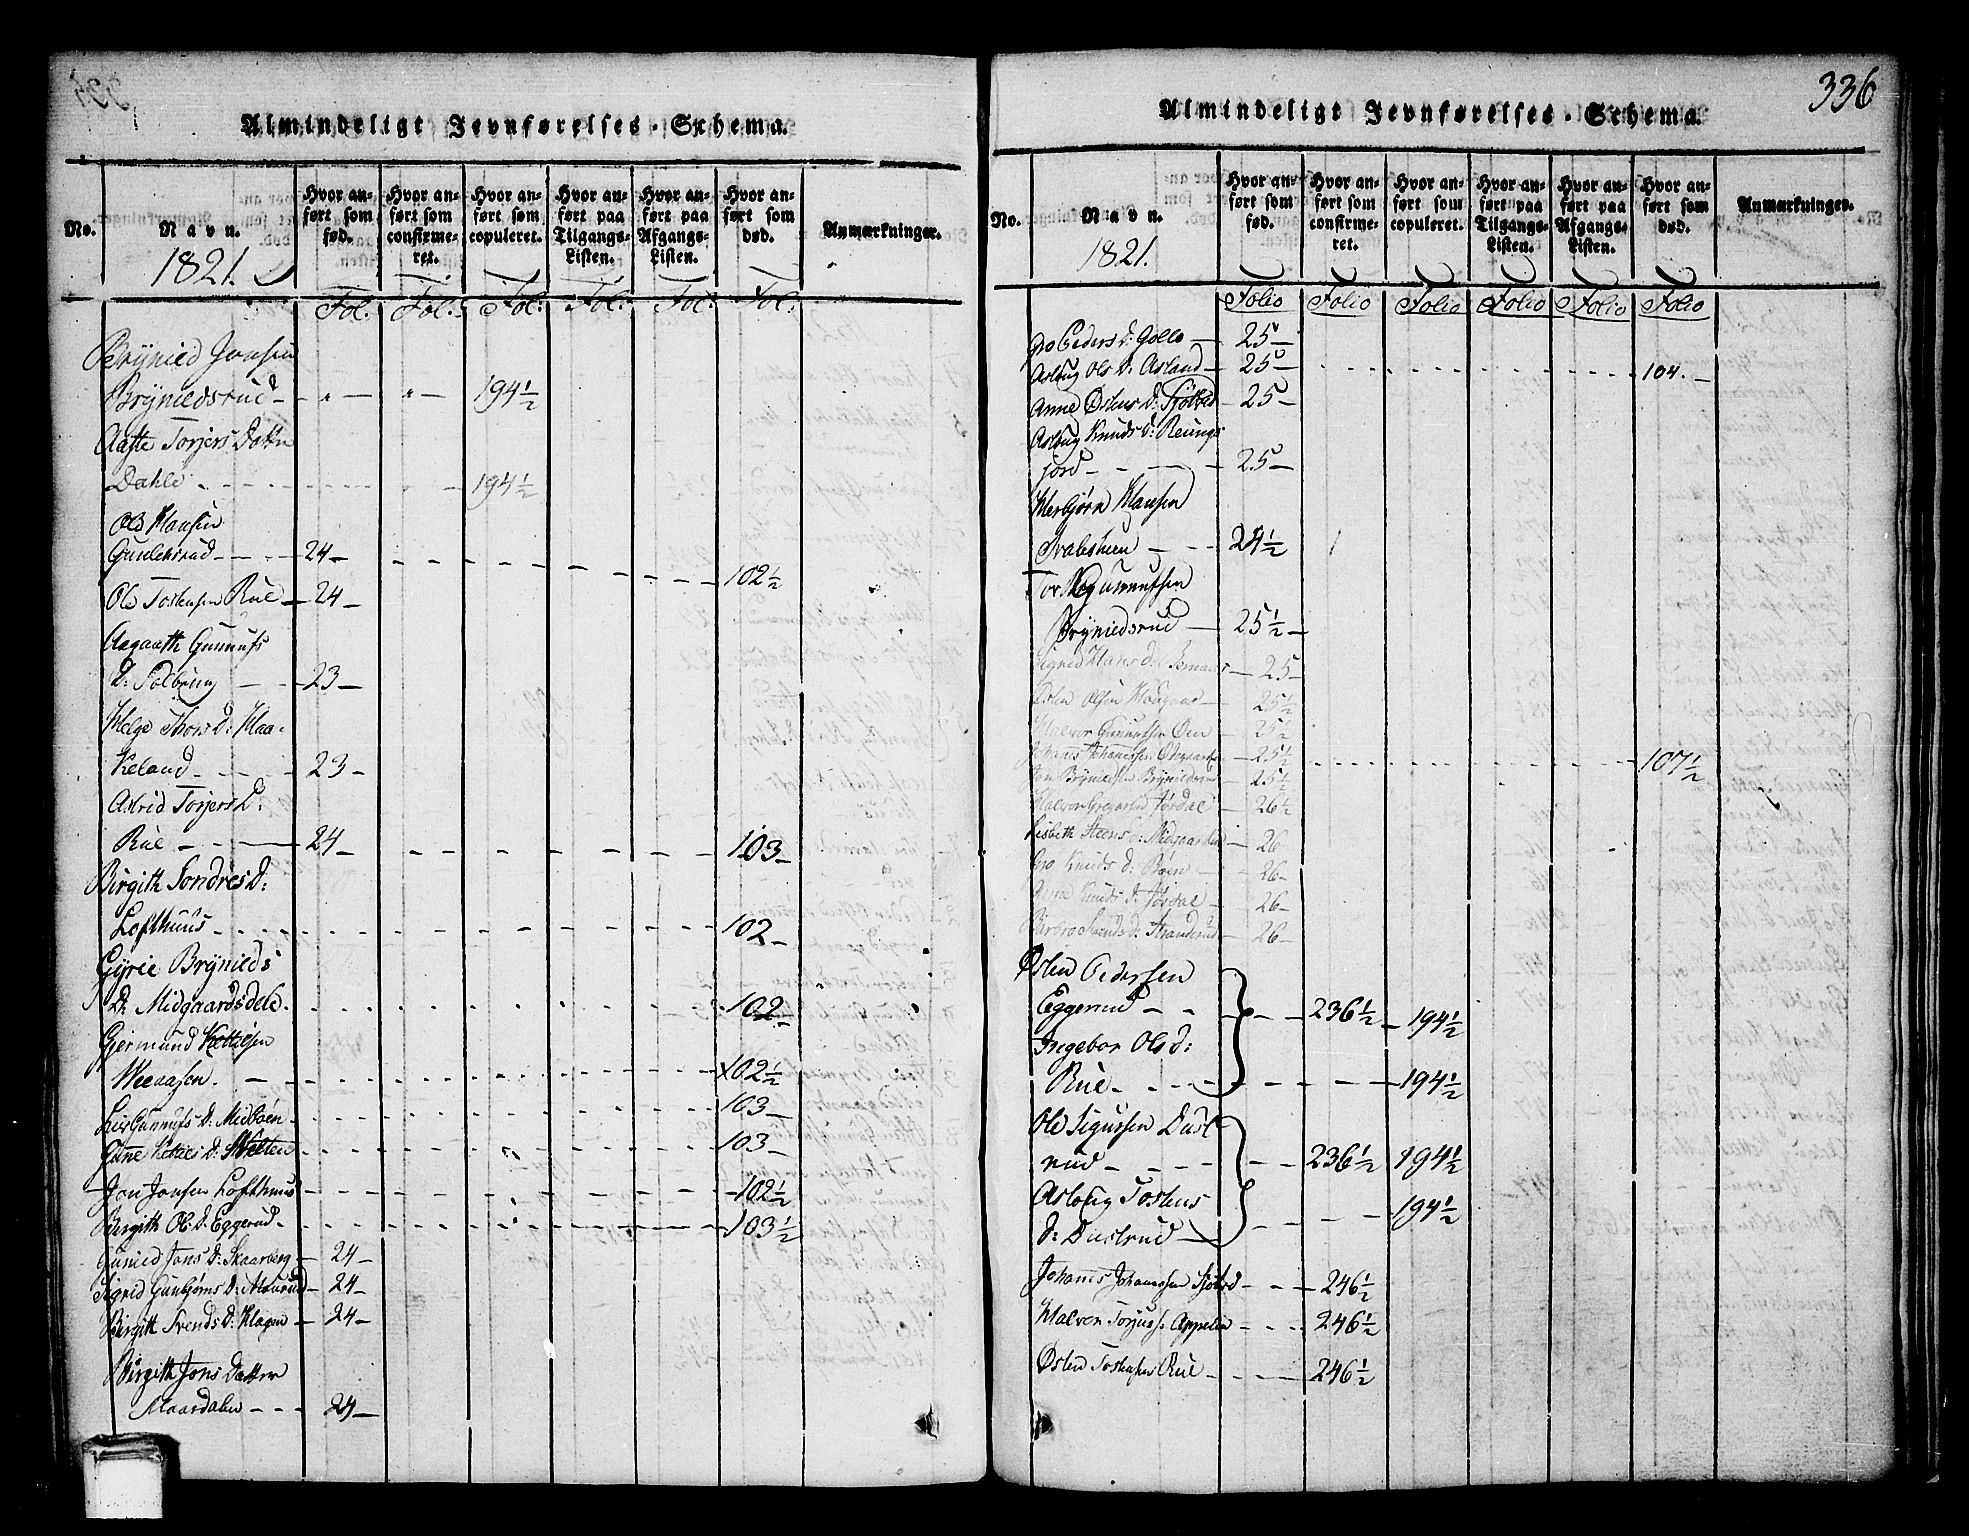 Almindeligt Jevnførelses-Schema.
No.
Navn.
1821.
Hvor anført som fød.
Hvor anført som confirmeret.
Hvor anført som copuleret.
Hvor anført paa Tilgangs-Listen.
Hvor anført paa Afgangs-Listen.
Hvor anført som død.
Anmærkninger.
Fol: Fol: Fol: Fol: Fol: Fol:
Brynild Jonsen
Brynildsrud 194½
Aaste Torjers Dattr
Dahle 194½
Ole Hansen
Gunleksrud 24 102½
Ole Tostensen Rue 24
Aagaath Gunnufs
D: Solbrug 23
Helge Thors D: Haa-
keland 23
Astrid Torjers D:
Rue 24 103
Birgith Sondres D:
Lofthuus 102
Gyrie Brynilds
D: Midgaardsdele 102
Gjermund Kettelsen
Weeaasen 102½
Liv Gunnufs D: Midbøen 103
Gune Kettels D: 103
Jon Jonsen Lofthuus 102½
Birgith Ol: D: Eggerud 103½
Gunild Jons D: Skaarberg 24
Sigrid Gunbjørns D: Maurud 24
Birgitt Svends D: Hagen 24
Birgith Jons Datter
Maardalen 24
336
Almindeligt Jevnførelses-Schema.
No.
Navn.
1821.
Hvor anført som fød.
Hvor anført som confirmeret.
Hvor anført som copuleret.
Hvor anført paa Tilgangs-Listen.
Hvor anført paa Afgangs-Listen.
Hvor anført som død.
Anmærkninger.
Folio Folio Folio Folio Folio Folio
Gro Peders D: Gollo 25
Aslaug Ols D: Aasland 25 104.
Anne Østens D: 25
Aslaug Knuds D: Reungs
jord 25
Herbjørn Hansen
24½
Tor Gunnufsen
Brynildsrud 25½
Sigrid Hans D: 25
Østen Olsen Haugaas 25½
Halvor Gunnufsen Øen 25½
Johans Johannssen 25½ 107½
Jon Brynildsen Brynildsrud 25½
Halvor Gregarsen Jørdal 26½
Lisbeth Steens D: Midgaarden 26
Gro Knuds D: Bøen 26
Anne Knuds D: Jørdal 26
Barbro Svends D: Stranderud 26
Østen Pedersen
Eggerud 236½ 194½
Ingebor Ols d:
Rue 194½
Ole Sigurssen Dust
rud 236½ 194½
Aslaug Tostens 194½
D: Dustrud
Johannes Johannssen 246½
Halvor Torjuss: 246½
Østen Tostensen Rue 246½